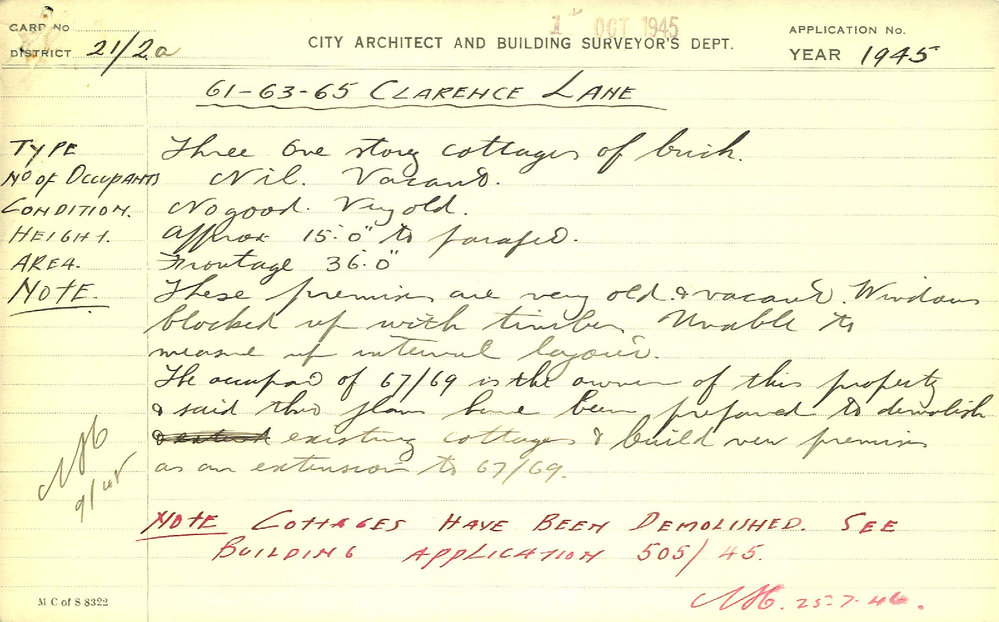 CARD No
DISTRICT 21/2a
1 OCT 1945
CITY ARCHITECT AND BUILDING SURVEYOR'S DEPT.
APPLICATION No.
YEAR 1945
61-63-65 CLARENCE LANE
TYPE Three One story cottages of brick.
No OF OCCUPANTS Nil. Vacant.
CONDITION. No good. Very old.
HEIGHT. Approx 15'.0" to parapet.
AREA. Frontage 36'.0"
NOTE. These premises are very old & vacant. Windows
blocked up with timber. Unable to
measure up internal layout.
The occupant of 67/69 is the owner of this property
& said that plans have been prepared to demolish
existing cottages & build new premises
as an extension to 67/69.
NOTE COTTAGES HAVE BEEN DEMOLISHED. SEE
BUILDING APPLICATION 505/45.
25-7-46.
M C of S 8322